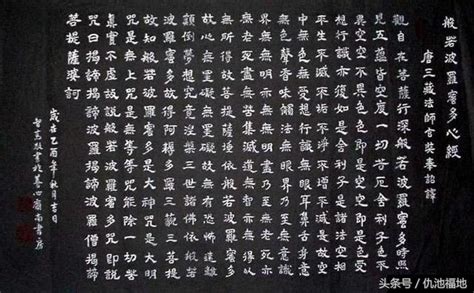 般若波羅蜜多心經
唐三藏法師玄奘奉詔譯
觀自在菩薩行深般若波羅蜜多時照
見五蘊皆空度一切苦厄舍利子色不
異空空不異色色即是空空即是色受
想行識亦復如是舍利子是諸法空相
不生不滅不垢不淨不增不減是故空
中無色無受想行識無眼耳鼻舌身意
無色聲香味觸法無眼界乃至無意識
界無無明亦無無明盡乃至無老死亦
無老死盡無苦集滅道無智亦無得以
無所得故菩提薩埵依般若波羅蜜多
故心無罣礙無罣礙故無有恐怖遠離
顛倒夢想究竟涅槃三世諸佛依般若
波羅蜜多故得阿耨多羅三藐三菩提
故知般若波羅蜜多是大神咒是大明
咒是無上咒是無等等咒能除一切苦
真實不虛故說般若波羅蜜多咒即說
咒曰揭諦揭諦波羅揭諦波羅僧揭諦
菩提薩婆訶
歲在乙酉年秋月吉日
敬書於南書房
头条号 / 仇池福地